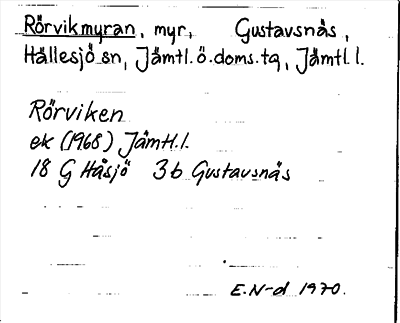 Rörvikmyran, myr, Gustavsnäs,
Hällesjö sn, Jämtl.ö.doms.tg, Jämtl.l.
Rörviken
ek (1968) Jämtl.l.
18 G Håsjö 3b Gustavsnäs
E.N-d 1970.